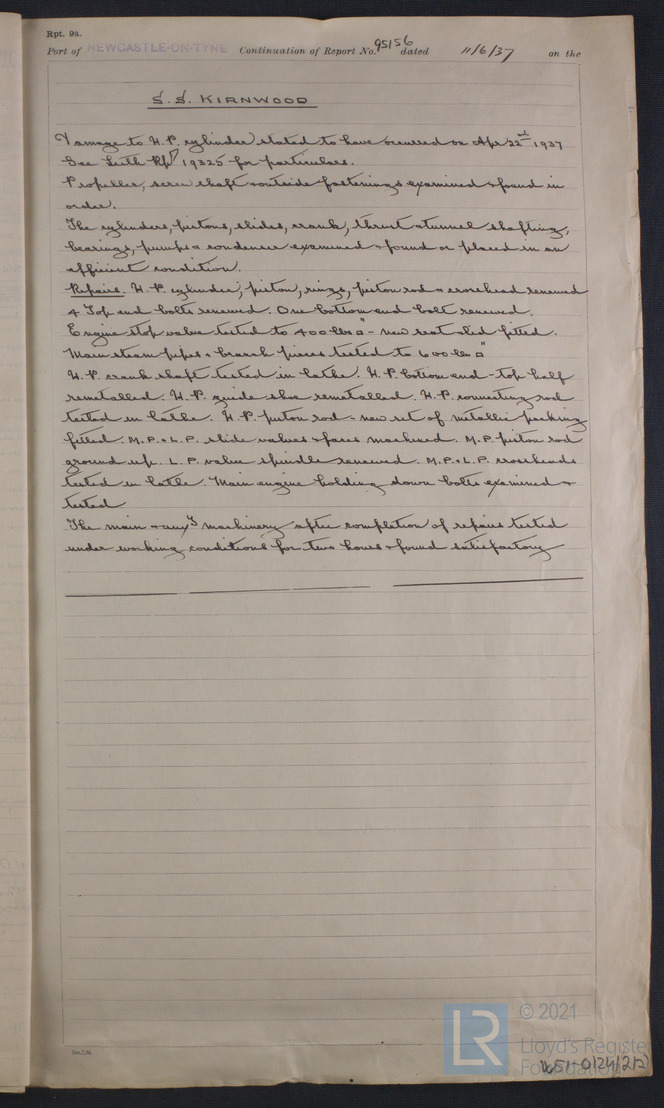 Rpt. 9a.
Port of NEWCASTLE-ON-TYNE Continuation of Report No. 95156 dated 11/6/37 on the
S.S. KIRNWOOD
Damage to H.P. cylinder stated to have occurred on Apr 22nd 1937
See Leith Rpt 19325 for particulars.
Propeller, screw shaft & outside fastenings examined & found in
order.
The cylinders, pistons, slides, crank, thrust & tunnel shafting,
bearings, pumps & condenser examined & found or placed in an
efficient condition.
Repairs. H.P. cylinder, piston, rings, piston rod & crosshead renewed
4 Top end bolts renewed. One bottom end bolt renewed.
Engine stop valve tested to 400 lbs □" - new seat & lid fitted.
Main steam pipes & branch pieces tested to 600 lbs □"
H.P. crank shaft tested in lathe. H.P. bottom end - top half
remetalled. H.P. guide shoe remetalled. H.P. connecting rod
tested in lathe. H.P. piston rod - new set of metallic packing
fitted. M.P. & L.P. slide valves & faces machined. M.P. piston rod
ground up. L.P. valve spindle renewed. M.P. & L.P. crossheads
tested in lathe. Main engine holding down bolts examined &
tested
The main & auxy machinery after completion of repairs tested
under working conditions for two hours & found satisfactory
LR © 2021
Lloyd's Register
Foundation
W51-0124(2/2)